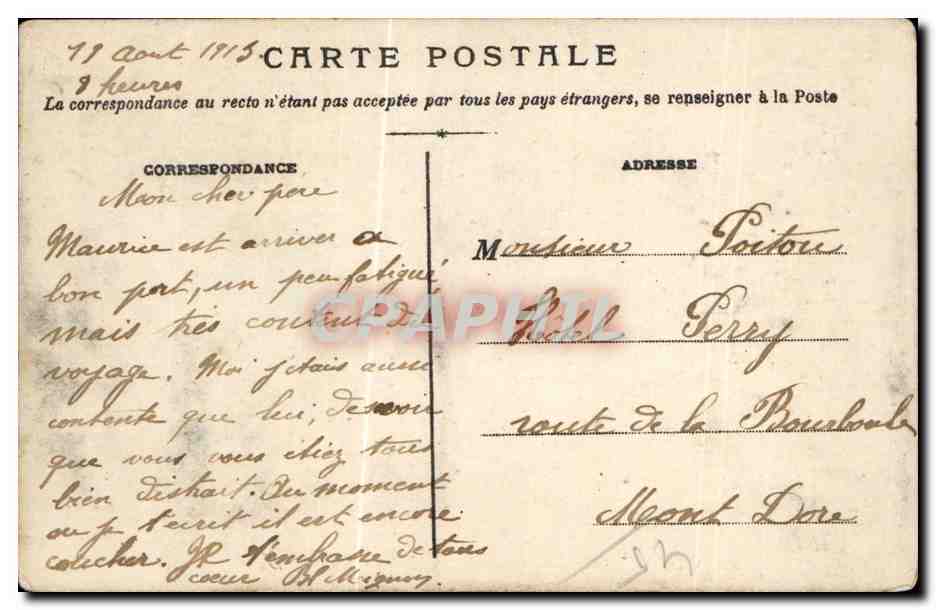 19 Aout 1913
8 heures
CARTE POSTALE
La correspondance au recto n'étant pas acceptée par tous les pays étrangers, se renseigner à la Poste
CORRESPONDANCE
Mon cher pere
Maurice est arriver a
bon port, un peu fatigué,
mais très content du
voyage. Moi j'etais aussi
contente que lui, de voir
que vous vous étiez tous
bien distrait. Au moment
ou je t'ecrit il est encore
coucher. Je t'embrasse de tous
coeur
ADRESSE
Monsieur Poitou
Hotel Perry
route de la Bourboule
Mont Dore
CPAPHIL